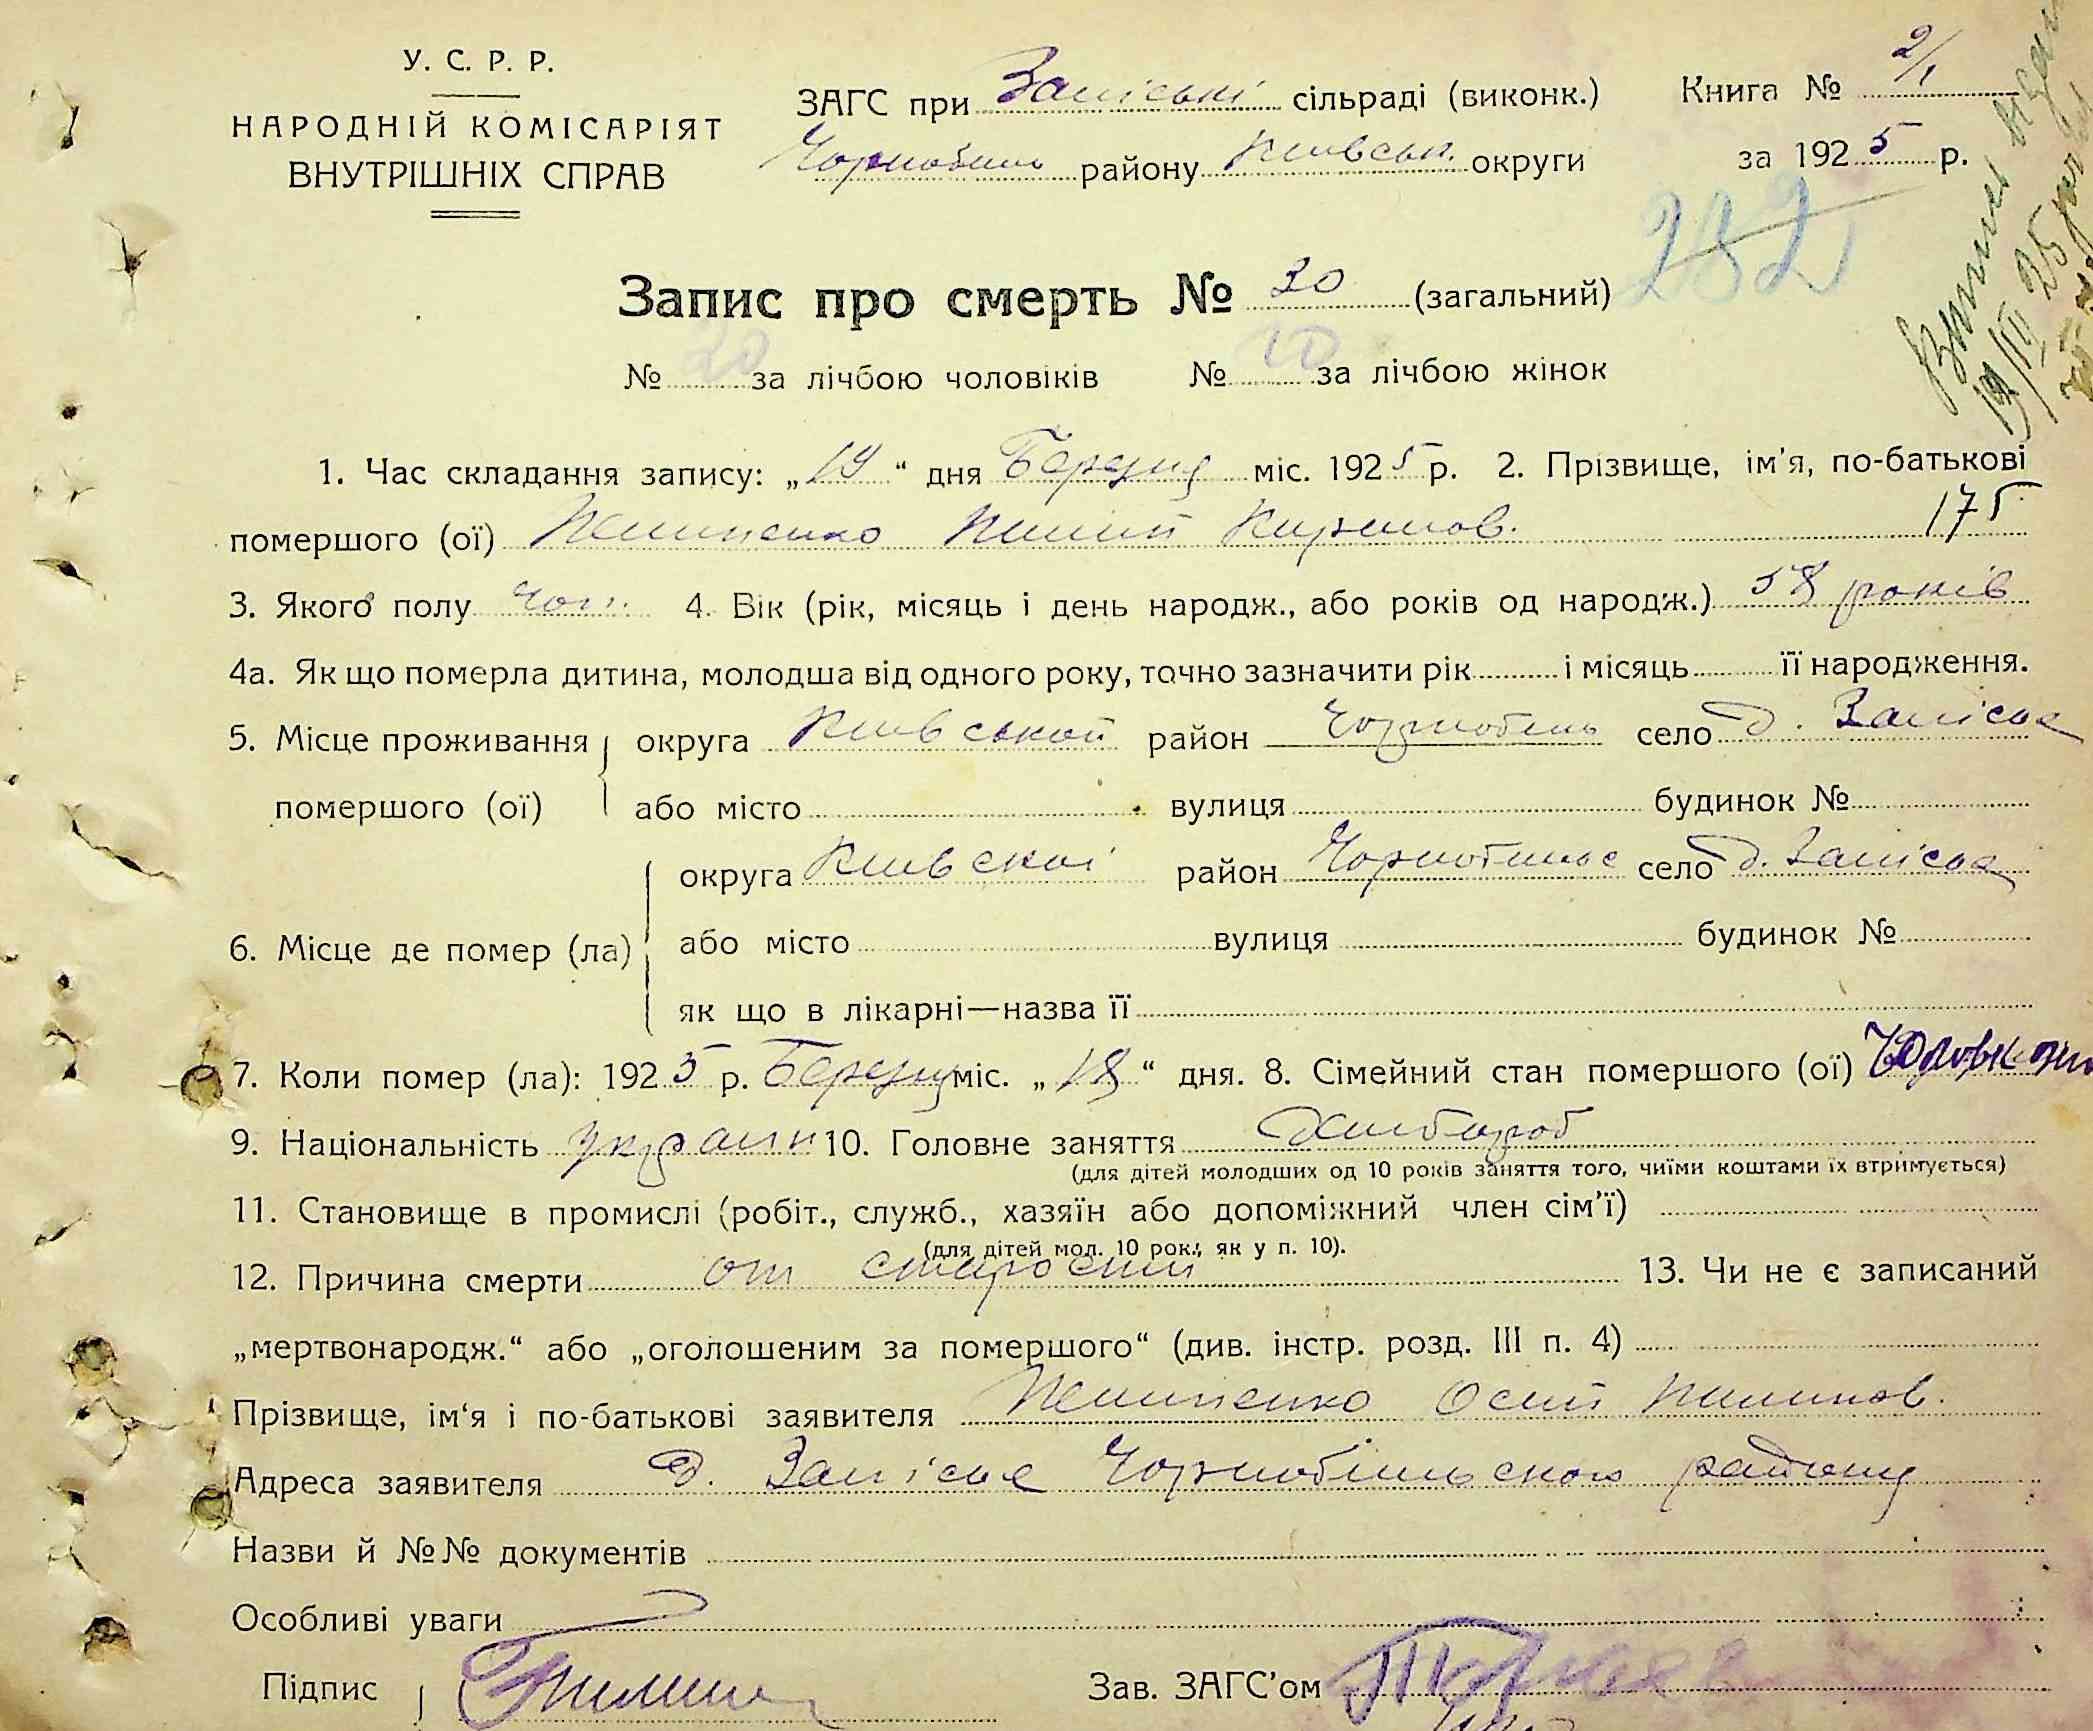 У. С. Р. Р.
НАРОДНІЙ КОМІСАРІЯТ
ВНУТРІШНІХ СПРАВ
ЗАГС при Заліські сільраді (виконк.)
Чорнобиль району Київськ. округи
Книга № 2/1
за 1925 р.
282
Запис про смерть № 20 (загальний)
№ 20 за лічбою чоловіків № 10 за лічбою жінок
1. Час складання запису: „19“ дня Березня міс. 1925 р. 2. Прізвище, ім'я, по-батькові
помершого (ої) Пилип 175
3. Якого полу чол. 4. Вік (рік, місяць і день народж., або років од народж.) 58 років
4а. Як що померла дитина, молодша від одного року, точно зазначити рік і місяць її народження.
5. Місце проживання округа Київської район Чорнобиль село д. Залісья
помершого (ої) або місто вулиця будинок №
округа Київскоі район село д. Залісья
6. Місце де помер (ла) або місто вулиця будинок №
як що в лікарні—назва її
7. Коли помер (ла): 1925 р. Березня міс. „18“ дня. 8. Сімейний стан помершого (ої)
9. Національність україн 10. Головне заняття Хлибороб
(для дітей молодших од 10 років заняття того, чиїми коштами їх втримується)
11. Становище в промислі (робіт., служб., хазяїн або допоміжний член сім'ї)
(для дітей мол. 10 рок., як у п. 10).
12. Причина смерти от старости 13. Чи не є записаний
„мертвонародж.“ або „оголошеним за помершого“ (див. інстр. розд. III п. 4)
Прізвище, ім'я і по-батькові заявителя Осип Пилипов.
Адреса заявителя д. Залісья Чорнобильского району
Назви й №№ документів
Особливі уваги
Підпис
Зав. ЗАГС'ом